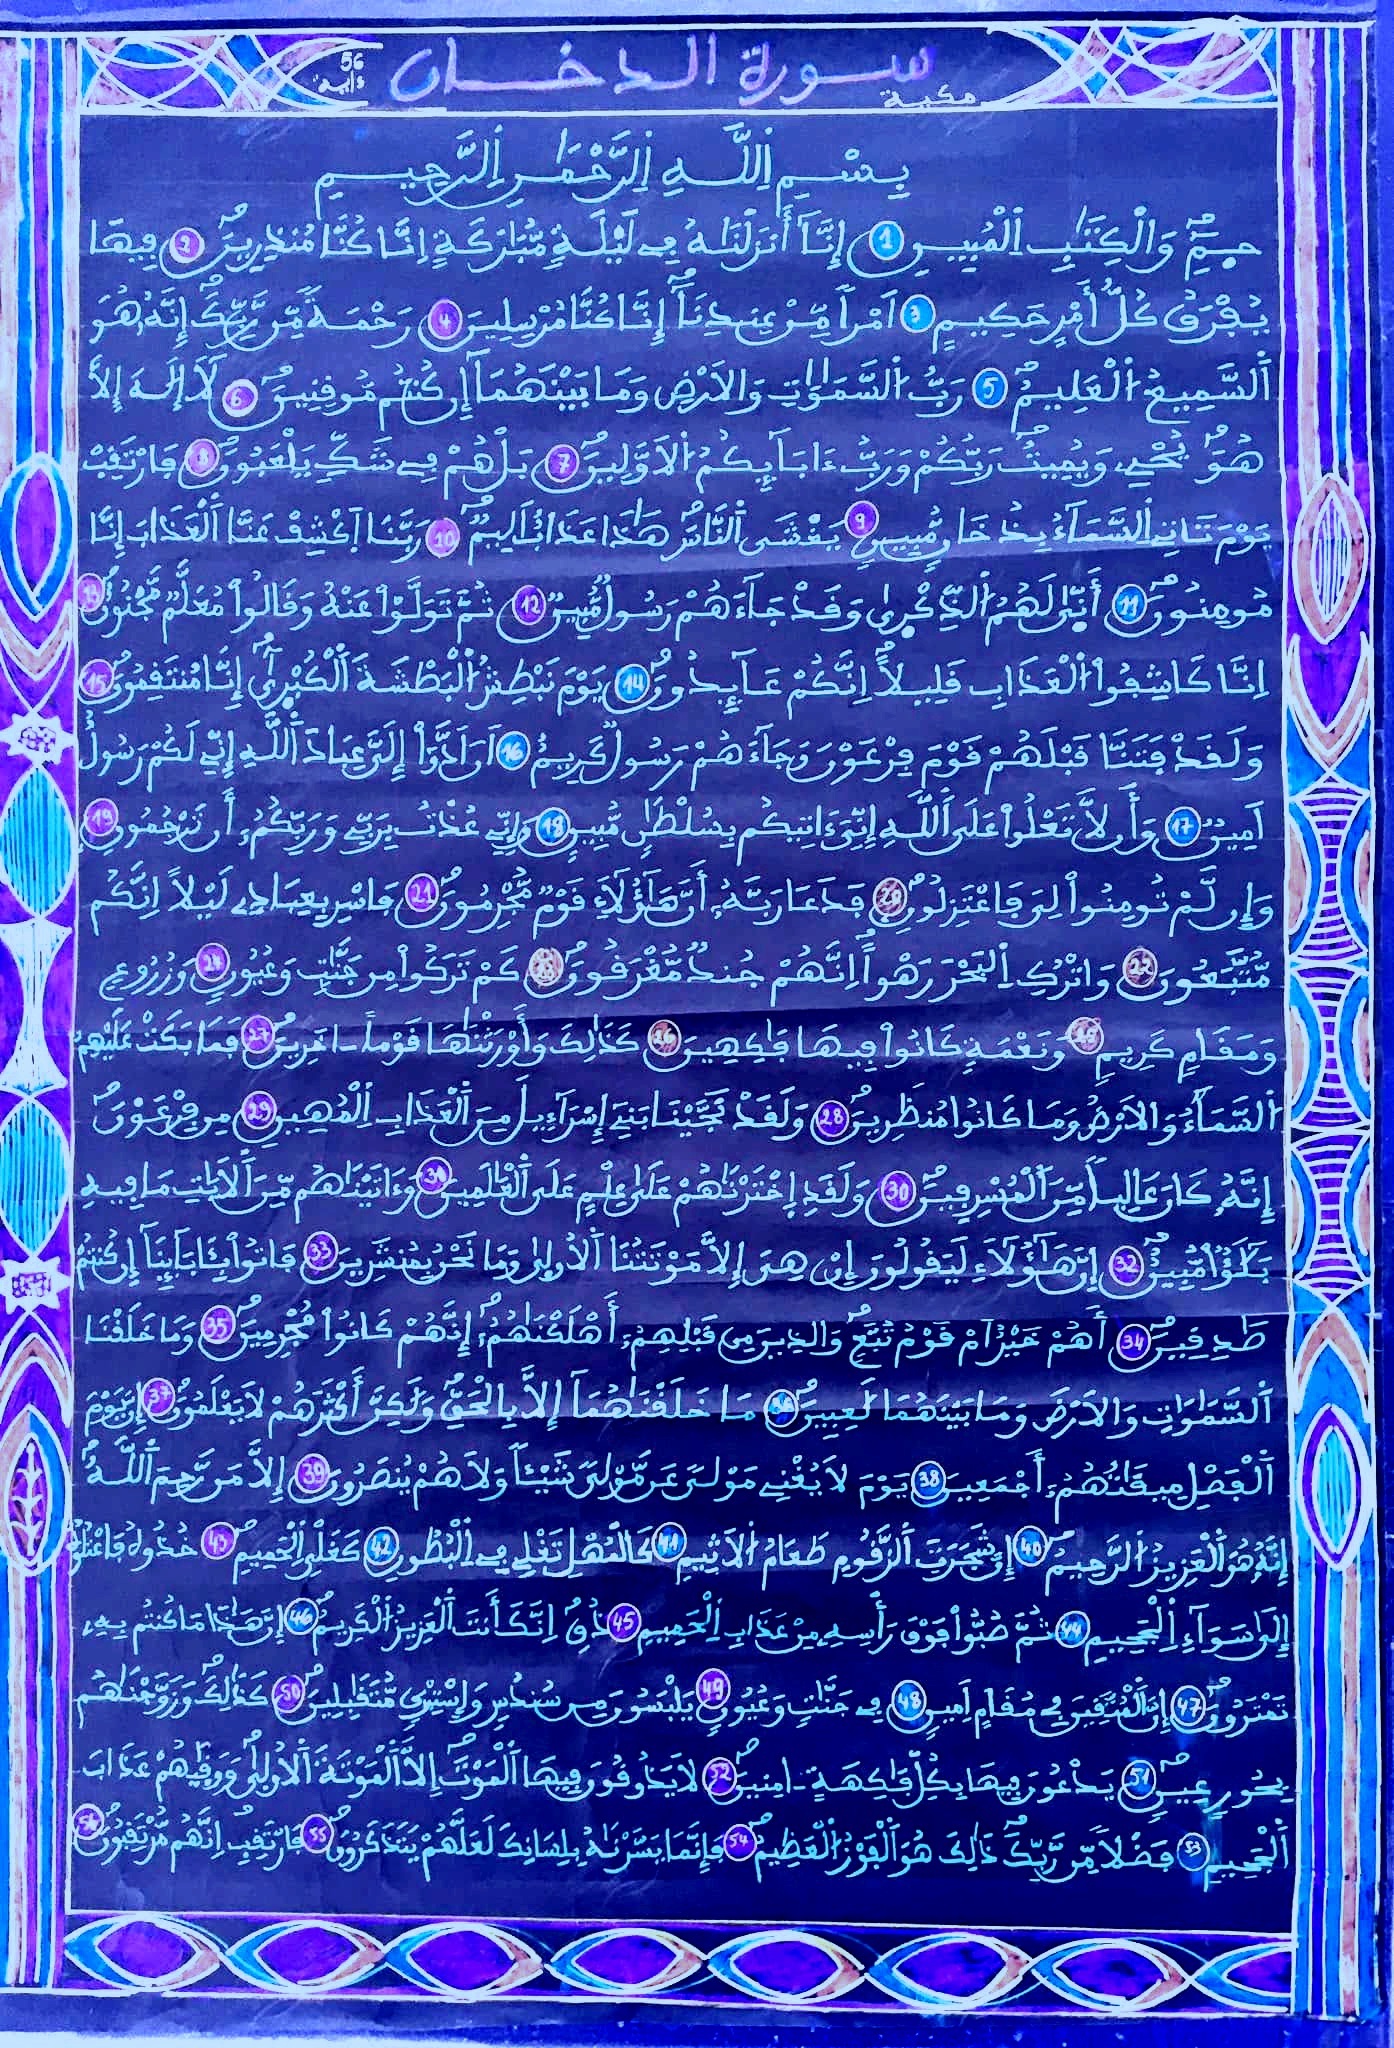 سورة الدخان
مكية
56 ءاية
بِسْمِ اِللَّهِ اِلرَّحْمَٰنِ اِلرَّحِيمِ
حمِٓ وَالْكِتَٰبِ اِلْمُبِينِ 1 إِنَّآ أَنزَلْنَٰهُ فِے لَيْلَةٖ مُّبَٰرَكَةٍ اِنَّا كُنَّا مُنذِرِينَۖ 2 فِيهَا
يُفْرَقُ كُلُّ أَمْرٍ حَكِيمٍ 3 اَمْراٗ مِّنْ عِندِنَآۖ إِنَّا كُنَّا مُرْسِلِينَ 4 رَحْمَةٗ مِّن رَّبِّكَۖ إِنَّهُۥ هُوَ
اَلسَّمِيعُ اُلْعَلِيمُۖ 5 رَبُّ اُلسَّمَٰوَٰتِ وَالَارْضِ وَمَا بَيْنَهُمَآ إِن كُنتُم مُّوقِنِينَۖ 6 لَآ إِلَٰهَ إِلَّا
هُوَۖ يُحْيِے وَيُمِيتُۖ رَبُّكُمْ وَرَبُّ ءَابَآئِكُمُ اُلَاوَّلِينَۖ 7 بَلْ هُمْ فِے شَكّٖ يَلْعَبُونَۖ 8 فَارْتَقِبْ
يَوْمَ تَاتِے اِلسَّمَآءُ بِدُخَانٖ مُّبِينٖ 9 يَغْشَى اَلنَّاسَۖ هَٰذَا عَذَابٌ اَلِيمٞۖ 10 رَّبَّنَا اَكْشِفْ عَنَّا اَلْعَذَابَ إِنَّا
مُومِنُونَۖ 11 أَنّ۪يٰ لَهُمُ اُلذِّكْر۪يٰ وَقَدْ جَآءَهُمْ رَسُولٞ مُّبِينٞ 12 ثُمَّ تَوَلَّوْاْ عَنْهُ وَقَالُواْ مُعَلَّمٞ مَّجْنُونٌۖ 13
اِنَّا كَاشِفُواْ اُلْعَذَابِ قَلِيلاًۖ اِنَّكُمْ عَآئِدُونَۖ 14 يَوْمَ نَبْطِشُ اُلْبَطْشَةَ اَلْكُبْر۪يٰٓ إِنَّا مُنتَقِمُونَۖ 15
وَلَقَدْ فَتَنَّا قَبْلَهُمْ قَوْمَ فِرْعَوْنَ وَجَآءَهُمْ رَسُولٞ كَرِيمٌ 16 اَنَ اَدُّوٓاْ إِلَيَّ عِبَادَ اَللَّهِ إِنِّے لَكُمْ رَسُولٌ
اَمِينٞ 17 وَأَن لَّا تَعْلُواْ عَلَى اَللَّهِ إِنِّيَ ءَاتِيكُم بِسُلْطَٰنٖ مُّبِينٖ 18 وَإِنِّے عُذْتُ بِرَبِّے وَرَبِّكُمُۥٓ أَن تَرْجُمُونِۦ 19
وَإِن لَّمْ تُومِنُواْ لِيَ فَاعْتَزِلُونِۦ 20 فَدَعَا رَبَّهُۥٓ أَنَّ هَٰٓؤُلَآءِ قَوْمٞ مُّجْرِمُونَۖ 21 فَاسْرِ بِعِبَادِے لَيْلاً اِنَّكُم
مُّتَّبَعُونَ 22 وَاتْرُكِ اِلْبَحْرَ رَهْواًۖ اِنَّهُمْ جُندٞ مُّغْرَقُونَۖ 23 كَمْ تَرَكُواْ مِن جَنَّٰتٖ وَعُيُونٖ 24 وَزُرُوعٖ
وَمَقَامٖ كَرِيمٖ 25 وَنَعْمَةٖ كَانُواْ فِيهَا فَٰكِهِينَۖ 26 كَذَٰلِكَ وَأَوْرَثْنَٰهَا قَوْماً اٰخَرِينَۖ 27 فَمَا بَكَتْ عَلَيْهِمُ
اُلسَّمَآءُ وَالَارْضُ وَمَا كَانُواْ مُنظَرِينَۖ 28 وَلَقَدْ نَجَّيْنَا بَنِےٓ إِسْرَآءِيلَ مِنَ اَلْعَذَابِ اِلْمُهِينِ 29 مِن فِرْعَوْنَۖ
إِنَّهُۥ كَانَ عَالِياٗ مِّنَ اَلْمُسْرِفِينَۖ 30 وَلَقَدِ اِخْتَرْنَٰهُمْ عَلَىٰ عِلْمٍ عَلَى اَلْعَٰلَمِينَۖ 31 وَءَاتَيْنَٰهُم مِّنَ اَلَايَٰتِ مَا فِيهِ
بَلَٰٓؤٞاْ مُّبِينٌۖ 32 إِنَّ هَٰٓؤُلَآءِ لَيَقُولُونَ إِنْ هِيَ إِلَّا مَوْتَتُنَا اَلُاولَىٰ وَمَا نَحْنُ بِمُنشَرِينَۖ 33 فَاتُواْ بِـَٔابَآئِنَآ إِن كُنتُمْ
صَٰدِقِينَۖ 34 أَهُمْ خَيْرٌ اَمْ قَوْمُ تُبَّعٖۖ وَالذِينَ مِن قَبْلِهِمُۥٓ أَهْلَكْنَٰهُمُۥٓۖ إِنَّهُمْ كَانُواْ مُجْرِمِينَۖ 35 وَمَا خَلَقْنَا
اَلسَّمَٰوَٰتِ وَالَارْضَ وَمَا بَيْنَهُمَا لَٰعِبِينَۖ 36 مَا خَلَقْنَٰهُمَآ إِلَّا بِالْحَقِّۖ وَلَٰكِنَّ أَكْثَرَهُمْ لَا يَعْلَمُونَۖ 37 إِنَّ يَوْمَ
اَلْفَصْلِ مِيقَٰتُهُمُۥٓ أَجْمَعِينَ 38 يَوْمَ لَا يُغْنِے مَوْلىً عَن مَّوْلىٗ شَيْـٔاٗ وَلَا هُمْ يُنصَرُونَ 39 إِلَّا مَن رَّحِمَ اَللَّهُۖ
إِنَّهُۥ هُوَ اَلْعَزِيزُ اُلرَّحِيمُۖ 40 إِنَّ شَجَرَتَ اَلزَّقُّومِ طَعَامُ اُلَاثِيمِ 41 كَالْمُهْلِ تَغْلِے فِے اِلْبُطُونِ 42 كَغَلْيِ اِلْحَمِيمِۖ 43 خُذُوهُ فَاعْتُلُوهُ
إِلَىٰ سَوَآءِ اِلْجَحِيمِ 44 ثُمَّ صُبُّواْ فَوْقَ رَأْسِهِۦ مِنْ عَذَابِ اِلْحَمِيمِ 45 ذُقِۖ اِنَّكَ أَنتَ اَلْعَزِيزُ اُلْكَرِيمُۖ 46 إِنَّ هَٰذَا مَا كُنتُم بِهِۦ
تَمْتَرُونَۖ 47 إِنَّ اَلْمُتَّقِينَ فِے مُقَامٍ اَمِينٖ 48 فِے جَنَّٰتٖ وَعُيُونٖ 49 يَلْبَسُونَ مِن سُندُسٖ وَإِسْتَبْرَقٖ مُّتَقَٰبِلِينَۖ 50 كَذَٰلِكَۖ وَزَوَّجْنَٰهُم
بِحُورٍ عِينٖۖ 51 يَدْعُونَ فِيهَا بِكُلِّ فَٰكِهَةٍ اٰمِنِينَۖ 52 لَا يَذُوقُونَ فِيهَا اَلْمَوْتَۖ إِلَّا اَلْمَوْتَةَ اَلُاولَىٰۖ وَوَقَىٰهُمْ عَذَابَ
اَلْجَحِيمِ 53 فَضْلاٗ مِّن رَّبِّكَۖ ذَٰلِكَ هُوَ اَلْفَوْزُ اُلْعَظِيمُۖ 54 فَإِنَّمَا يَسَّرْنَٰهُ بِلِسَانِكَ لَعَلَّهُمْ يَتَذَكَّرُونَۖ 55 فَارْتَقِبِ اِنَّهُم مُّرْتَقِبُونَۖ 56